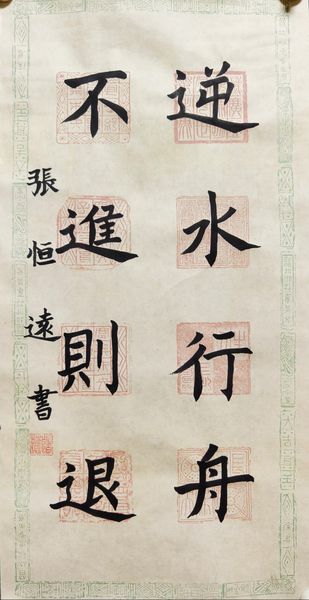 逆水行舟
不進則退
張恒遠書